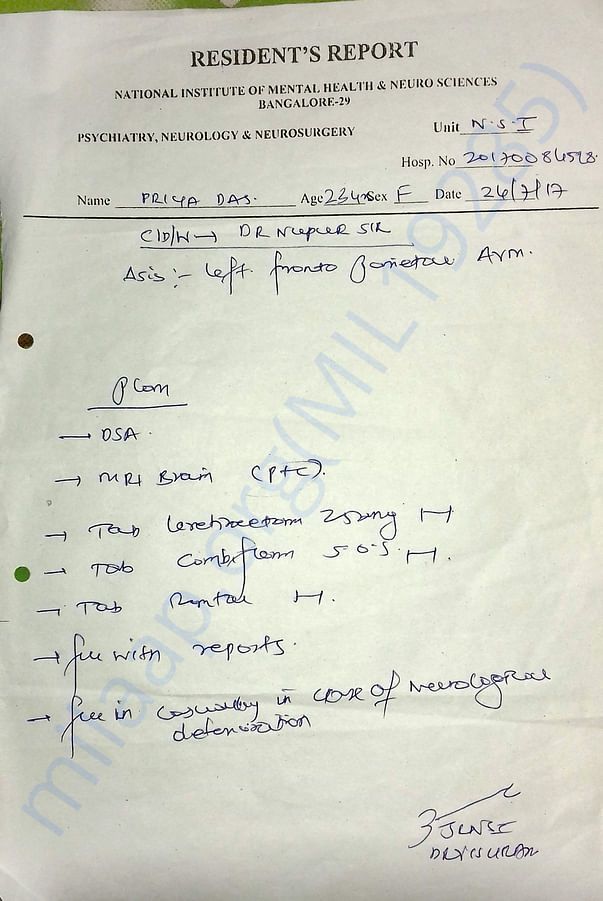 RESIDENT'S REPORT
NATIONAL INSTITUTE OF MENTAL HEALTH & NEURO SCIENCES
BANGALORE-29
PSYCHIATRY, NEUROLOGY & NEUROSURGERY
Unit N.S.I
Hosp. No 20170084598
Name PRIYA DAS. Age 23 yrs Sex F Date 26/7/17
C/D/W → DR SIR
left fronto parietal Avm.
Plan
→ DSA.
→ MRI Brain (P+C).
→ Tab 250mg
→ Tab Combiflam S.O.S.
→ Tab Rantac
→ f/u with reports.
→ f/u in casualty in case of neurological
deterioration
milaap.org(MIL19285)